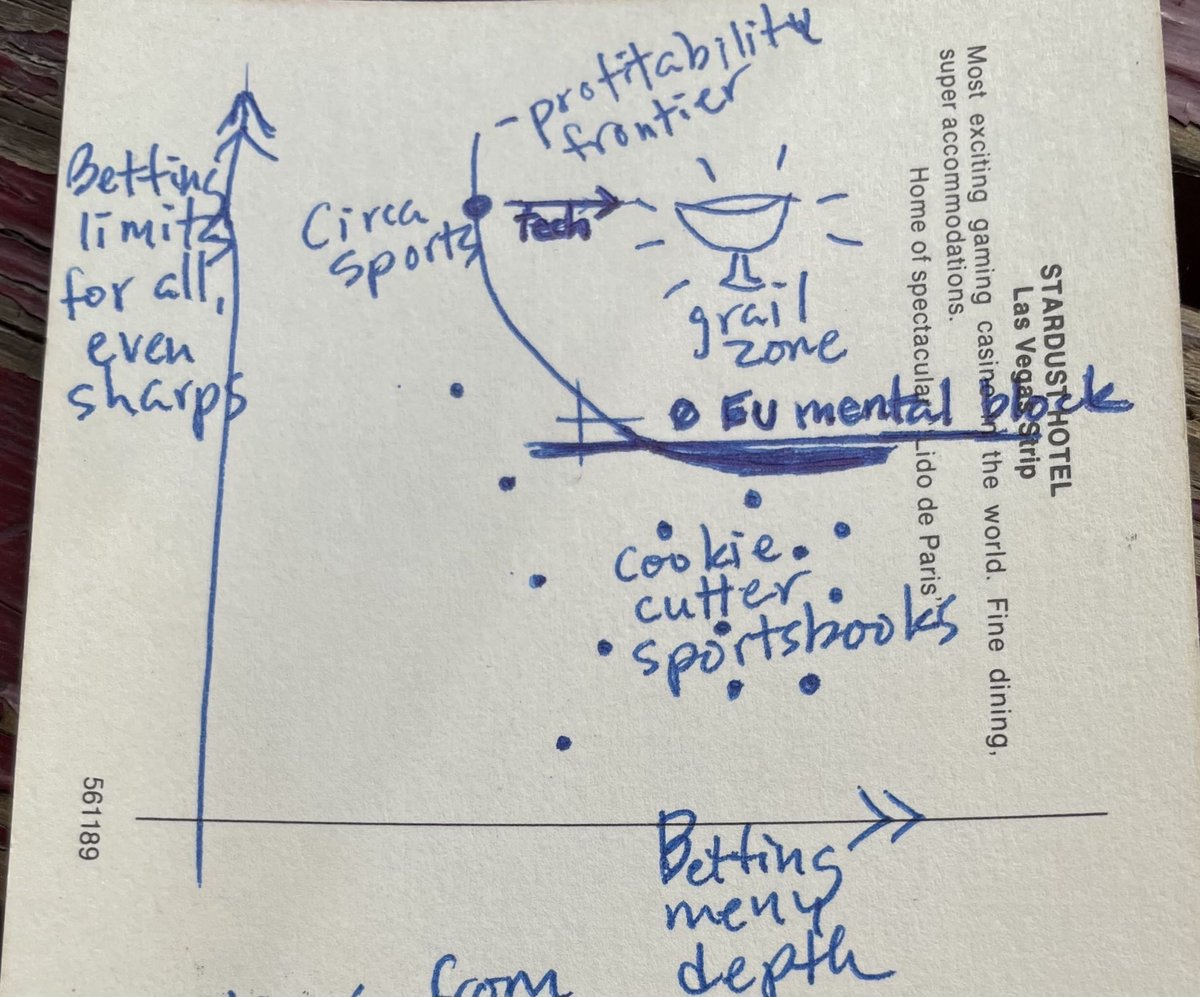 -profitability
frontier
Betting
limits
for all,
even
sharps
Circa
sports
Tech
grail
zone
EU mental block
cookie
cutter
sportsbooks
Betting
menu
depth
from
STARDUST HOTEL
Las Vegas Strip
Most exciting gaming casino in the world. Fine dining,
super accommodations.
Home of spectacular "Lido de Paris"
561189